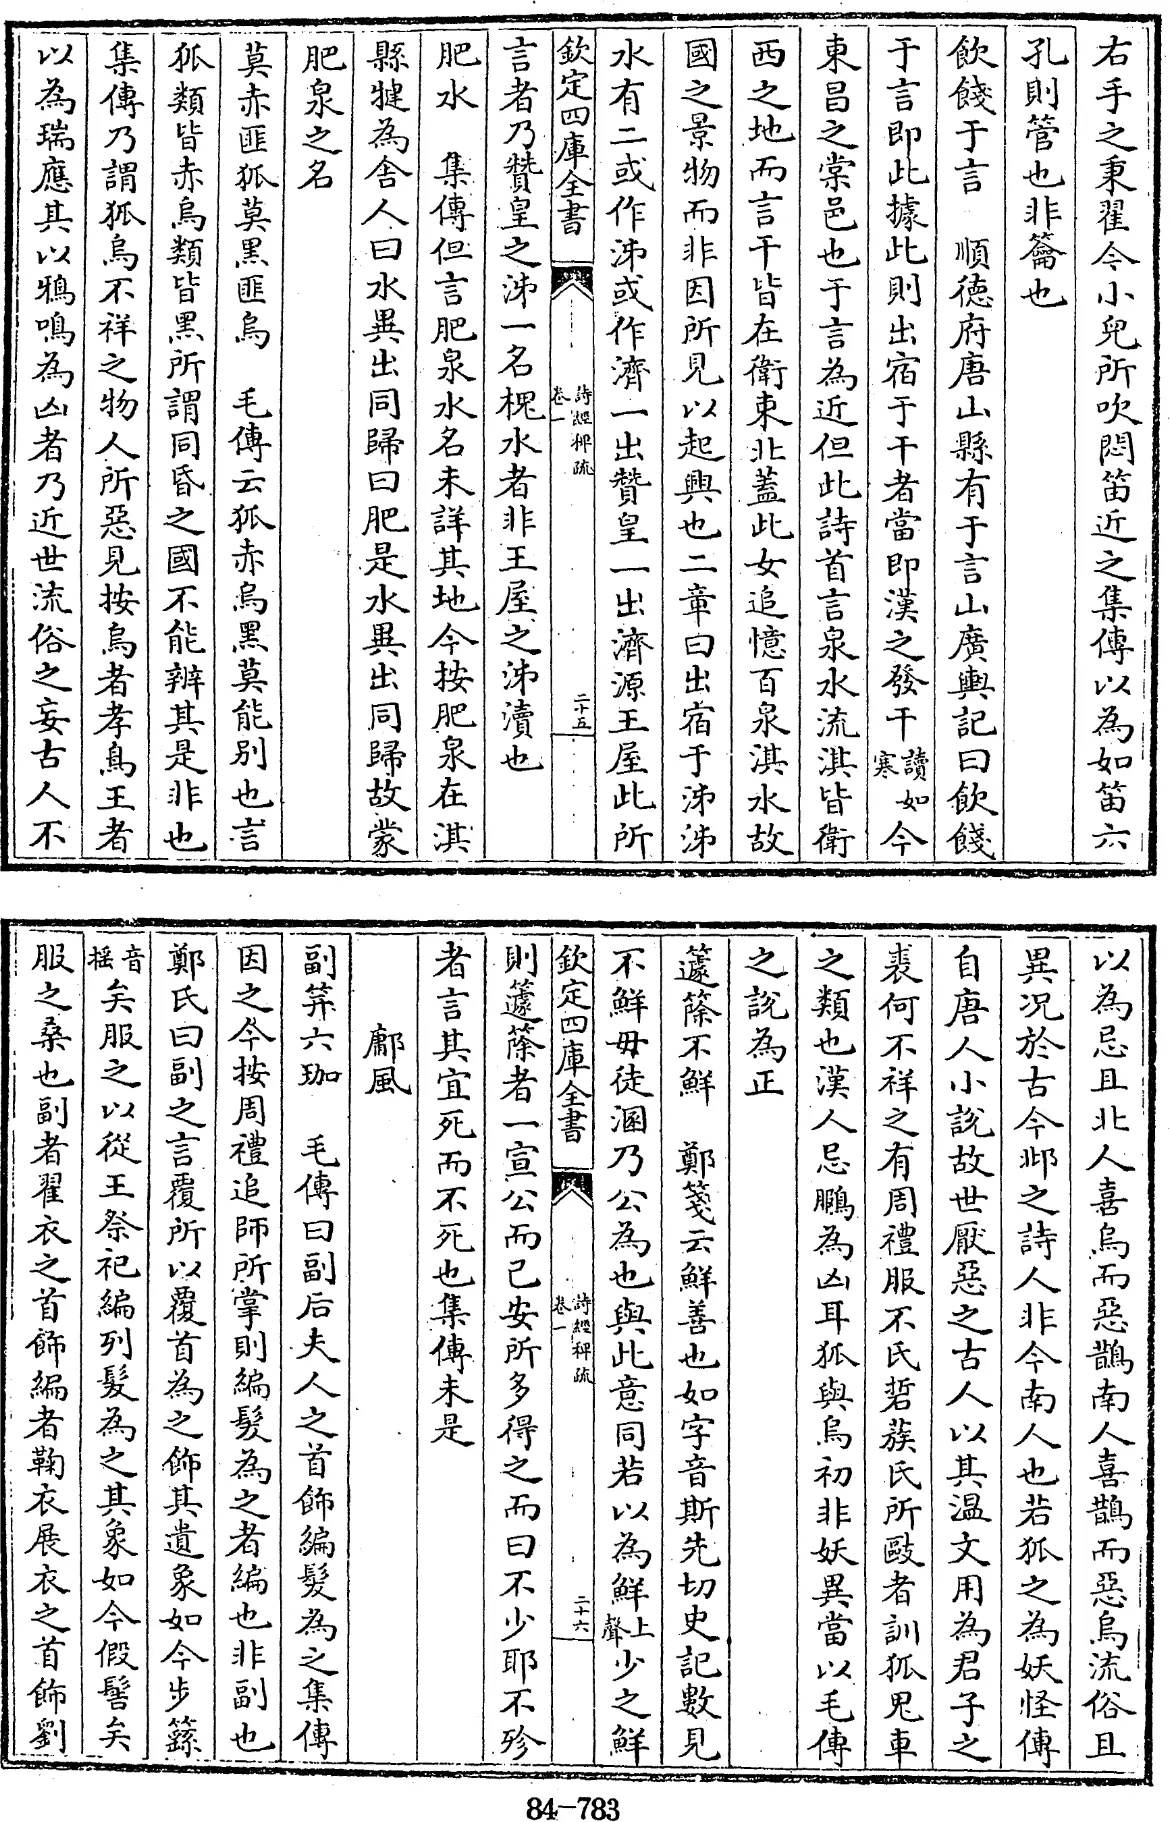 右手之秉翟今小兒所吹悶笛近之集傳以為如笛六
孔則管也非籥也
飲餞于言　順德府唐山縣有于言山廣輿記曰飲餞
于言即此據此則出宿于干者當即漢之發干讀如今寒
東昌之棠邑也于言為近但此詩首言泉水流淇皆衛
西之地而言干皆在衛東北蓋此女追憶百泉淇水故
國之景物而非因所見以起興也二章曰出宿于沛沛
水有二或作沛或作濟一出贊皇一出濟源王屋此所
欽定四庫全書　詩經稗疏卷一　二十五
言者乃贊皇之沛一名槐水者非王屋之沛瀆也
肥水　集傳但言肥泉水名未詳其地今按肥泉在淇
縣犍為舍人曰水異出同歸曰肥是水異出同歸故蒙
肥泉之名
莫赤匪狐莫黑匪烏　毛傳云狐赤烏黑莫能别也言
狐類皆赤烏類皆黑所謂同昏之國不能辨其是非也
集傳乃謂狐烏不祥之物人所惡見按烏者孝鳥王者
以為瑞應其以鴉鳴為凶者乃近世流俗之妄古人不
以為忌且北人喜烏而惡鵲南人喜鵲而惡烏流俗且
異況於古今邶之詩人非今南人也若狐之為妖怪傳
自唐人小說故世厭惡之古人以其溫文用為君子之
裘何不祥之有周禮服不氏硩蔟氏所毆者訓狐鬼車
之類也漢人忌鵩為凶耳狐與烏初非妖異當以毛傳
之說為正
籧篨不鮮　鄭箋云鮮善也如字音斯先切史記數見
不鮮毋徒溷乃公為也與此意同若以為鮮上聲少之鮮
欽定四庫全書　詩經稗疏卷一　二十六
則籧篨者一宣公而已安所多得之而曰不少耶不殄
者言其宜死而不死也集傳未是
鄘風
副筓六珈　毛傳曰副后夫人之首飾編髮為之集傳
因之今按周禮追師所掌則編髮為之者編也非副也
鄭氏曰副之言覆所以覆首為之飾其遺象如今步繇
音摇矣服之以從王祭祀編列髮為之其象如今假髻矣
服之桑也副者翟衣之首飾編者鞠衣展衣之首飾劉
84-783